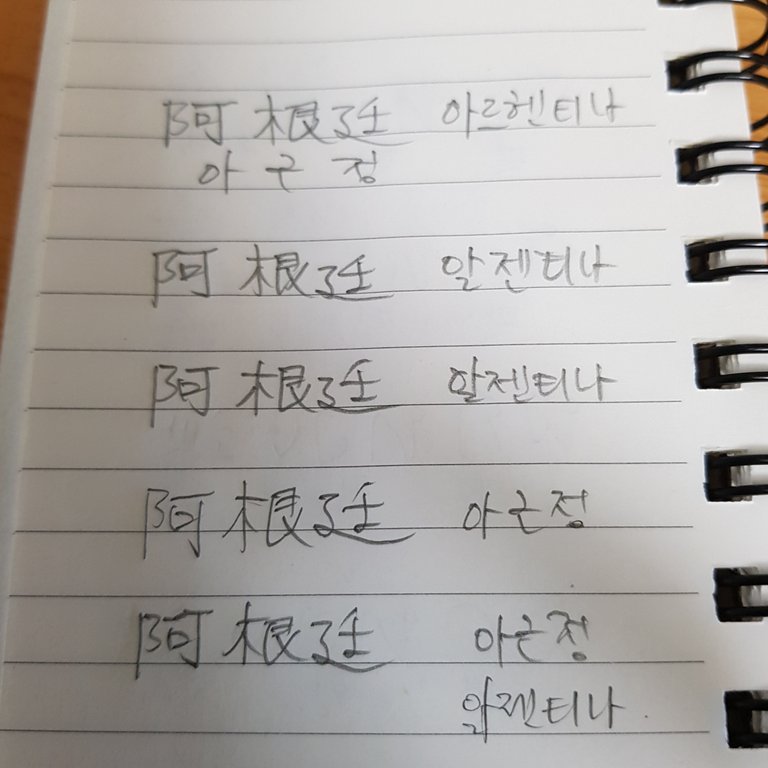 阿根廷 아르헨티나
아근정
阿根廷 알젠티나
阿根廷 알젠티나
阿根廷 아근정
阿根廷 아근정
알젠티나.